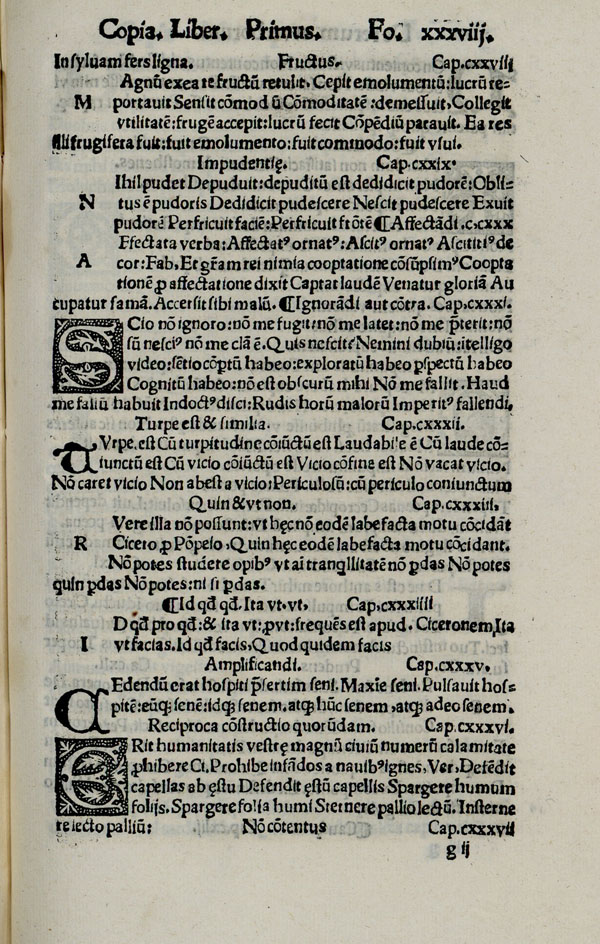 Copia. Liber. Primus. Fo. xxxviij.
In syluam fers ligna. Fructus. Cap.cxxviii
Agnũ ex ea re fructũ retulit, Cepit emolumentũ:lucrũ re⸗
M portauit Sensit cõmodũ Cõmoditatẽ :demessuit, Collegit
vtilitatẽ:frugẽ accepit:lucrũ fecit Cõpẽdiũ parauit. Ea res
illi frugifera fuit:fuit emolumento:fuit commodo:fuit vsui.
Impudentię. Cap.cxxix.
Ihil pudet Depuduit:depuditũ est dedidicit pudorẽ:Obli⸗
N tus ẽ pudoris Dedidicit pudescere Nescit pudescere Exuit
pudorẽ Perfricuit faciẽ:Perfricuit frõtẽ ¶Affectãdi .c.cxxx
Ffectata verba:Affectatꝰ ornatꝰ:Ascitꝰ ornatꝰ Ascititiꝰ de
A cor:Fab, Et gr̃am rei nimia cooptatione cõsũpsimꝰ Coopta
tionẽ ꝓ affectatione dixit Captat laudẽ Venatur gloriã Au
cupatur famã. Accersit sibi malũ. ¶Ignorãdi aut cõtra. Cap.cxxxi.
SCio nõ ignoro:nõ me fugit:nõ me latet:nõ me p̃terit:nõ
sũ nesciꝰ nõ me clã ẽ. Quis nescit? Nemini dubiũ:ĩtelligo
video:sẽtio cõptũ habeo:exploratũ habeo ꝑspectũ habeo
Cognitũ habeo:nõ est obscurũ mihi Nõ me fallit. Haud
me falsũ habuit Indoctꝰ disci: Rudis horũ malorũ Imperitꝰ fallendi.
Turpe est & similia. Cap.cxxxii.
TVrpe. est Cũ turpitudine cõiũctũ est Laudabile ẽ Cũ laude cõ⸗
iunctũ est Cũ vicio cõiũctũ est Vicio cõfine est Nõ vacat vicio.
Nõ caret vicio Non abest a vicio: Periculosũ: cũ periculo coniunctum
Quin & vt non. Cap.cxxxiii.
Vere illa nõ possunt:vt hęc nõ eodẽ labefacta motu cõcidãt
R Cicero ꝓ Põpeio , Quin hęc eodẽ labefacta motu cõcidant.
Nõ potes studere opibꝰ vt aĩ tranqͥllitatẽ nõ ꝑdas Nõ potes
quin ꝑdas Nõ potes: ni si ꝑdas.
¶Id qđ qđ. Ita vt. vt, Cap,cxxxiiii
D qđ pro qđ: & ita vt: ꝓut: frequẽs est apud. Ciceronem, Ita
I vt facias. Id qđ facis, Quod quidem facis
Amplificandi. Cap.cxxxv,
CEdendũ erat hospiti p̃sertim seni. Maxĩe seni. Pulsauit hos⸗
pitẽ:eũqꝫ senẽ:idqꝫ senem. atqꝫ hũc senem ,atqꝫ adeo senem.
Reciproca cõstructio quorũdam. Cap.cxxxvi.
ERit humanitatis vestrę magnũ ciuiũ numerũ calamitate
ꝓhibere Ci. Prohibe infãdos a nauibꝰ ignes, Ver, Defẽdit
capellas ab ęstu Defendit ęstũ capellis Spargere humum
folijs. Spargere folia humi Sternere pallio lectũ. Insterne
re lecto palliũ: Nõ cõtentus Cap.cxxxvii
g ij